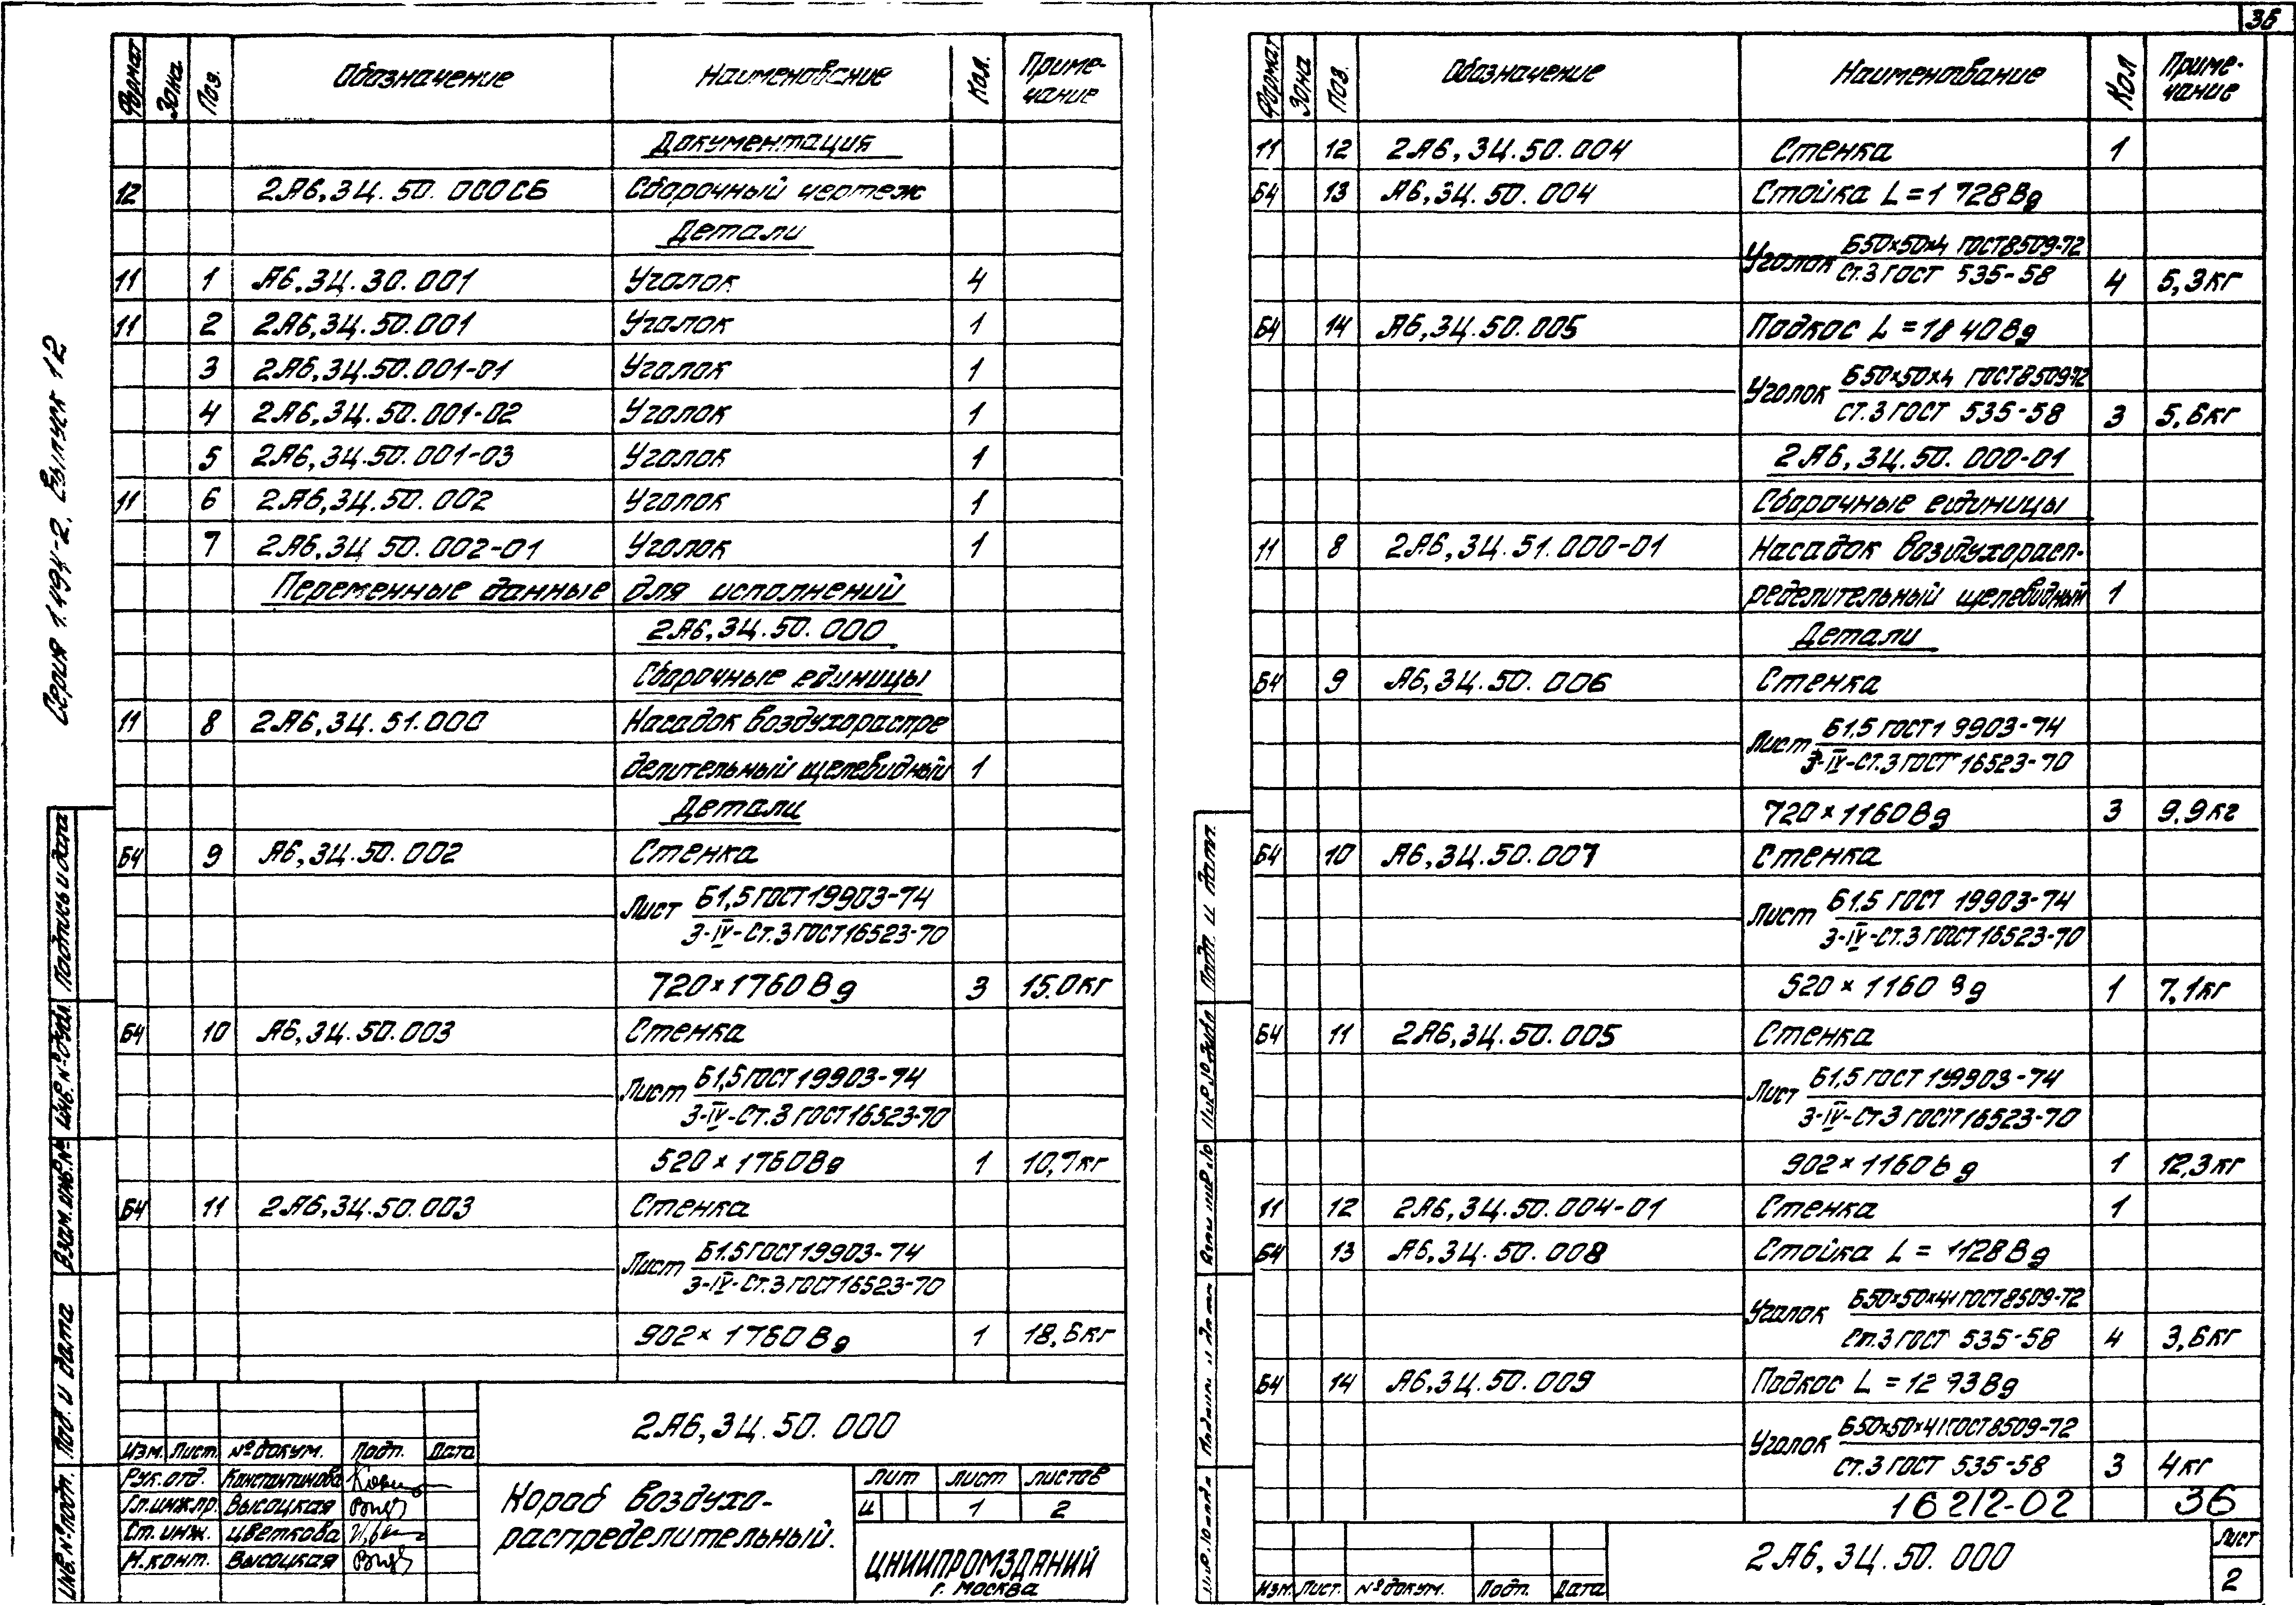 36
Серия 1.494-2. Выпуск 12
Формат Зона Поз. Обозначение Наименование Кол. Приме-
чание
Документация
12 2А6,3Ц.50.000СБ Сборочный чертеж
Детали
11 1 А6,3Ц.30.001 Уголок 4
11 2 2А6,3Ц.50.001 Уголок 1
3 2А6,3Ц.50.001-01 Уголок 1
4 2А6,3Ц.50.001-02 Уголок 1
5 2А6,3Ц.50.001-03 Уголок 1
11 6 2А6,3Ц.50.002 Уголок 1
7 2А6,3Ц 50.002-01 Уголок 1
Переменные данные для исполнений
2А6,3Ц.50.000
Сборочные единицы
11 8 2А6,3Ц.51.000 Насадок воздухораспре
делительный щелевидный 1
Детали
Б4 9 А6,3Ц.50.002 Стенка
Лист Б1,5 ГОСТ 19903-74
3-IV-Ст.3 ГОСТ 16523-70
720×1760Вg 3 15.0кг
Б4 10 А6,3Ц.50.003 Стенка
Лист Б1,5 ГОСТ 19903-74
3-IV-Ст.3 ГОСТ 16523-70
520×1760Вg 1 10,7кг
Б4 11 2А6,3Ц.50.003 Стенка
Лист Б1.5 ГОСТ 19903-74
3-IV-Ст.3 ГОСТ 16523-70
902×1760Вg 1 18,6кг
2А6,3Ц.50.000
Изм. Лист. № докум. Подп. Дата
Рук.отд. Константинова
Гл.инж.пр. Высоцкая
Ст. инж. Цветкова
Н.конт. Высоцкая
Короб воздухо-
распределительный.
Лит Лист Листов
И 1 2
ЦНИИПРОМЗДАНИЙ
г. Москва
Инв.№ подп. Под. и дата Взам.инв.№ Инв.№ дубл. Подпись и дата
Формат Зона Поз. Обозначение Наименование Кол Приме-
чание
11 12 2А6,3Ц.50.004 Стенка 1
Б4 13 А6,3Ц.50.004 Стойка L=1728Вg
Уголок Б50×50×4 ГОСТ8509-72
Ст.3 ГОСТ 535-58 4 5,3кг
Б4 14 А6,3Ц.50.005 Подкос L=1840Вg
Уголок Б50×50×4 ГОСТ8509-72
Ст.3 ГОСТ 535-58 3 5,6кг
2А6,3Ц.50.000-01
Сборочные единицы
11 8 2А6,3Ц.51.000-01 Насадок воздухорасп-
ределительный щелевидный 1
Детали
Б4 9 А6,3Ц.50.006 Стенка
Лист Б1,5 ГОСТ19903-74
3-IV-Ст.3 ГОСТ 16523-70
720×1160Вg 3 9,9кг
Б4 10 А6,3Ц.50.007 Стенка
Лист Б1.5 ГОСТ 19903-74
3-IV-Ст.3 ГОСТ 16523-70
520×1160 Вg 1 7,1кг
Б4 11 2А6,3Ц.50.005 Стенка
Лист Б1,5 ГОСТ 19903-74
3-IV-Ст.3 ГОСТ 16523-70
902×1160Вg 1 12,3кг
11 12 2А6,3Ц.50.004-01 Стенка 1
Б4 13 А6,3Ц.50.008 Стойка L=1128Вg
Уголок Б50×50×4 ГОСТ8509-72
Ст.3 ГОСТ 535-58 4 3,6кг
Б4 14 А6,3Ц.50.009 Подкос L=1273Вg
Уголок Б50×50×4 ГОСТ8509-72
Ст.3 ГОСТ 535-58 3 4кг
16212-02 36
2А6,3Ц.50.000
Лист
2
Изм. Лист. № докум. Подп. Дата
Подп. и дата